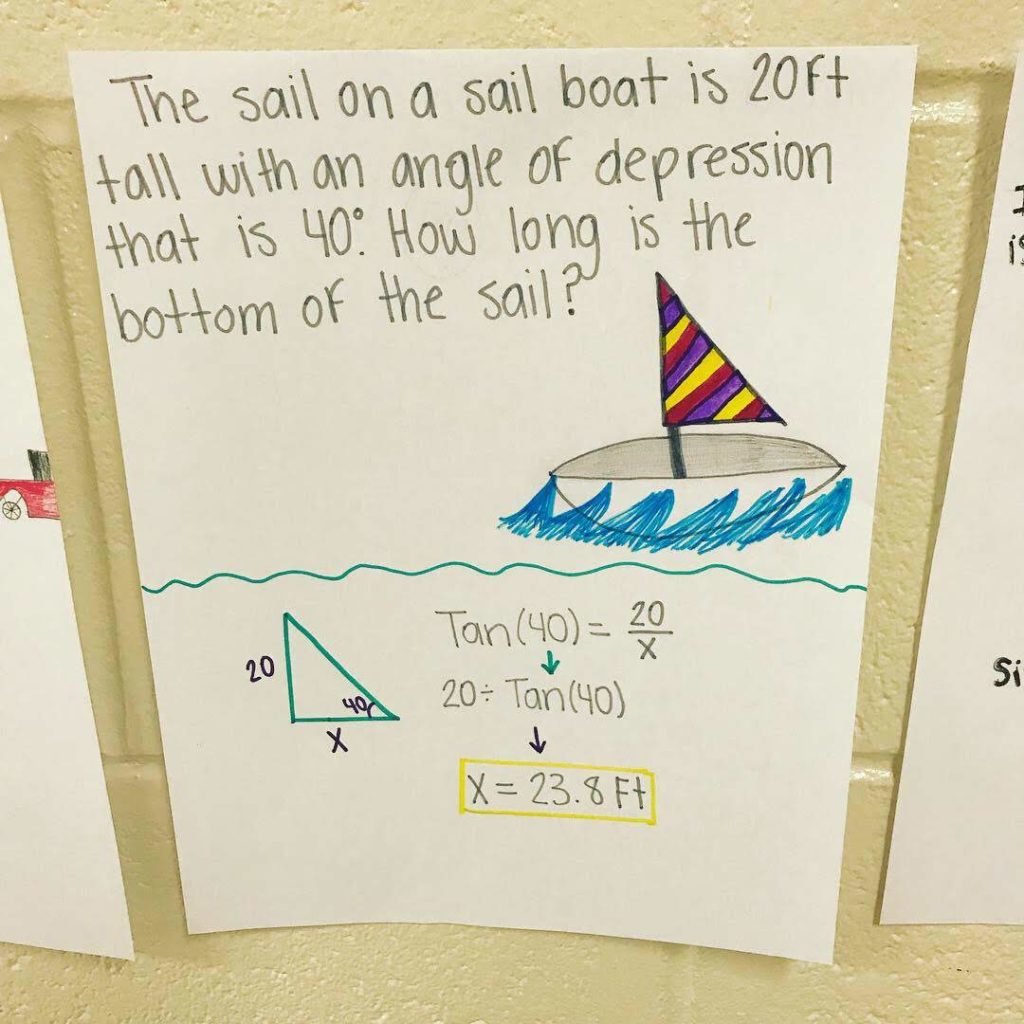 The sail on a sail boat is 20ft
tall with an angle of depression
that is 40°. How long is the
bottom of the sail?
20
40
X
Tan(40) = 20/X
20÷ Tan(40)
X = 23.8 Ft
is
Si